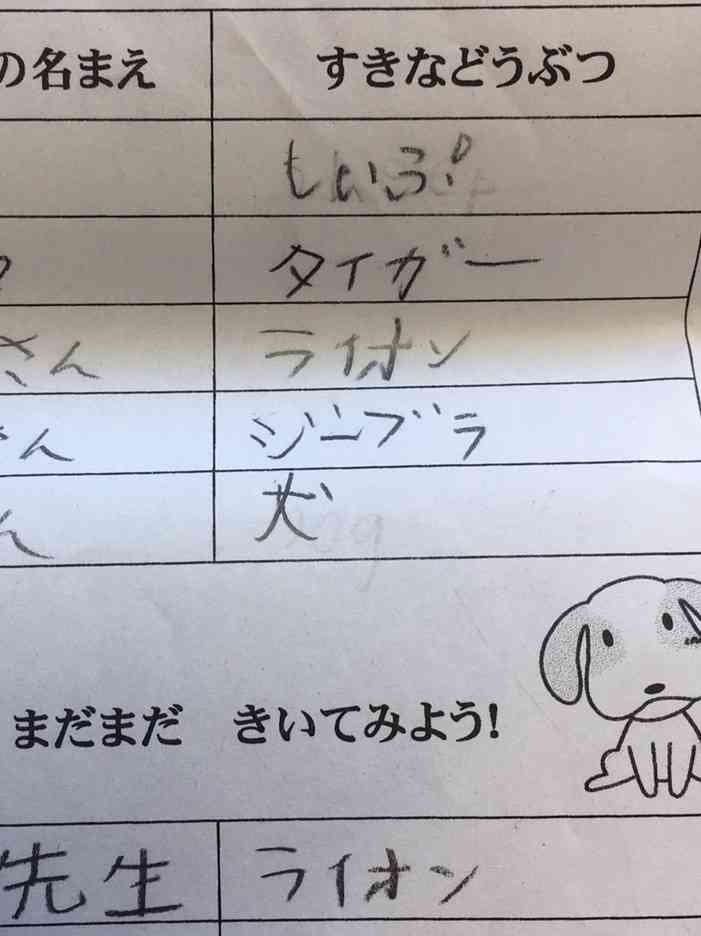 の名まえ すきなどうぶつ
タイガー
さん ライオン
さん ジーブラ
ん 犬
まだまだ きいてみよう!
先生 ライオン